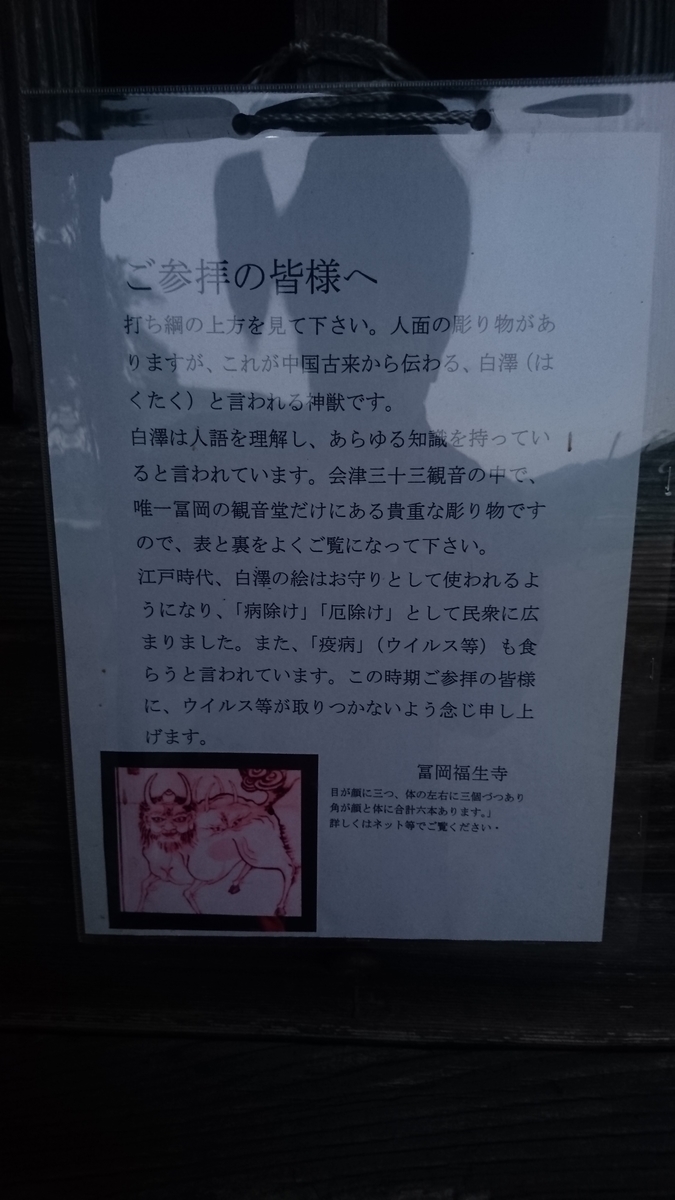 ご参拝の皆様へ
打ち綱の上方を見て下さい。人面の彫り物があ
りますが、これが中国古来から伝わる、白澤（は
くたく）と言われる神獣です。
白澤は人語を理解し、あらゆる知識を持ってい
ると言われています。会津三十三観音の中で、
唯一冨岡の観音堂だけにある貴重な彫り物です
ので、表と裏をよくご覧になって下さい。
江戸時代、白澤の絵はお守りとして使われるよ
うになり、「病除け」「厄除け」として民衆に広
まりました。また、「疫病」（ウイルス等）も食
らうと言われています。この時期ご参拝の皆様
に、ウイルス等が取りつかないよう念じ申し上
げます。
冨岡福生寺
目が顔に三つ、体の左右に三個づつあり
角が顔と体に合計六本あります。」
詳しくはネット等でご覧ください・